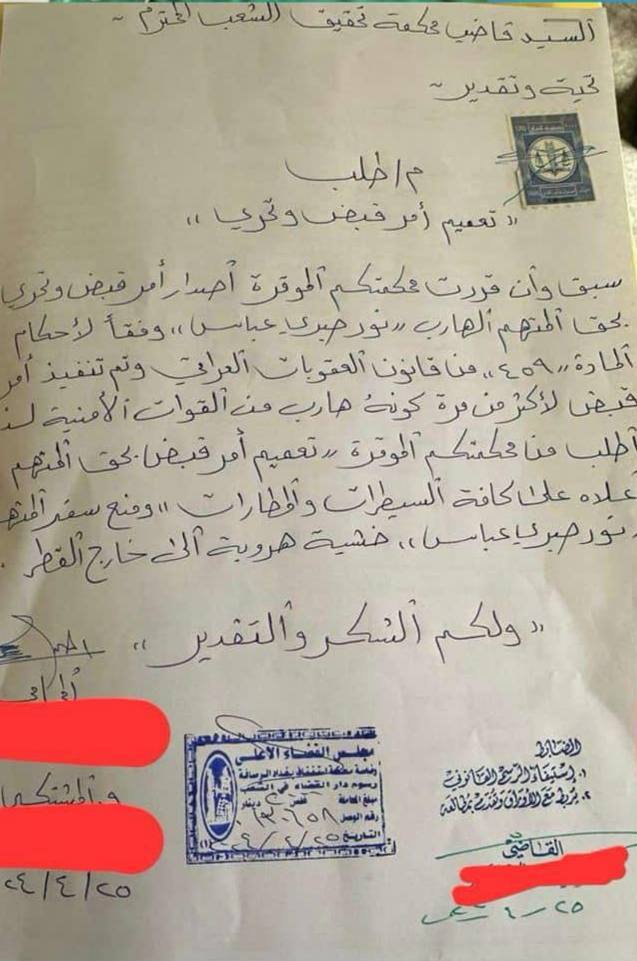 السيد قاضي محكمة تحقيق الشعب المحترم -
تحية وتقدير -
م/ طلب
« تعميم أمر قبض وتحري »
سبق وأن قررت محكمتكم الموقرة أصدار أمر قبض وتحري
بحق المتهم الهارب « نور صبري عباس » وفقاً لأحكام
المادة « ٤٥٩ » من قانون العقوبات العراقي وتم تنفيذ أمر
قبض لأكثر من مرة كونه هارب من القوات الأمنية لذ
أطلب من محكمتكم الموقرة « تعميم أمر قبض بحق المتهم
علاه على كافة السيطرات والمطارات » ومنع سفر المته
نور صبري عباس » خشية هروبة ألى خارج القطر .
« ولكم الشكر والتقدير »
المحامي
والمشتكي
٢٤/٤/٢٥
مجلس القضاء الأعلى
رئاسة محكمة استئناف بغداد الرصافة
رسوم دار القضاء في الشعب
مبلغ الحاصلة
دينار
رقم الوصل
التاريخ
الضابط
١. إستيفاء الرسم القانوني
٢. يربط مع الأوراق وتقدم بمطالعة
القاضي